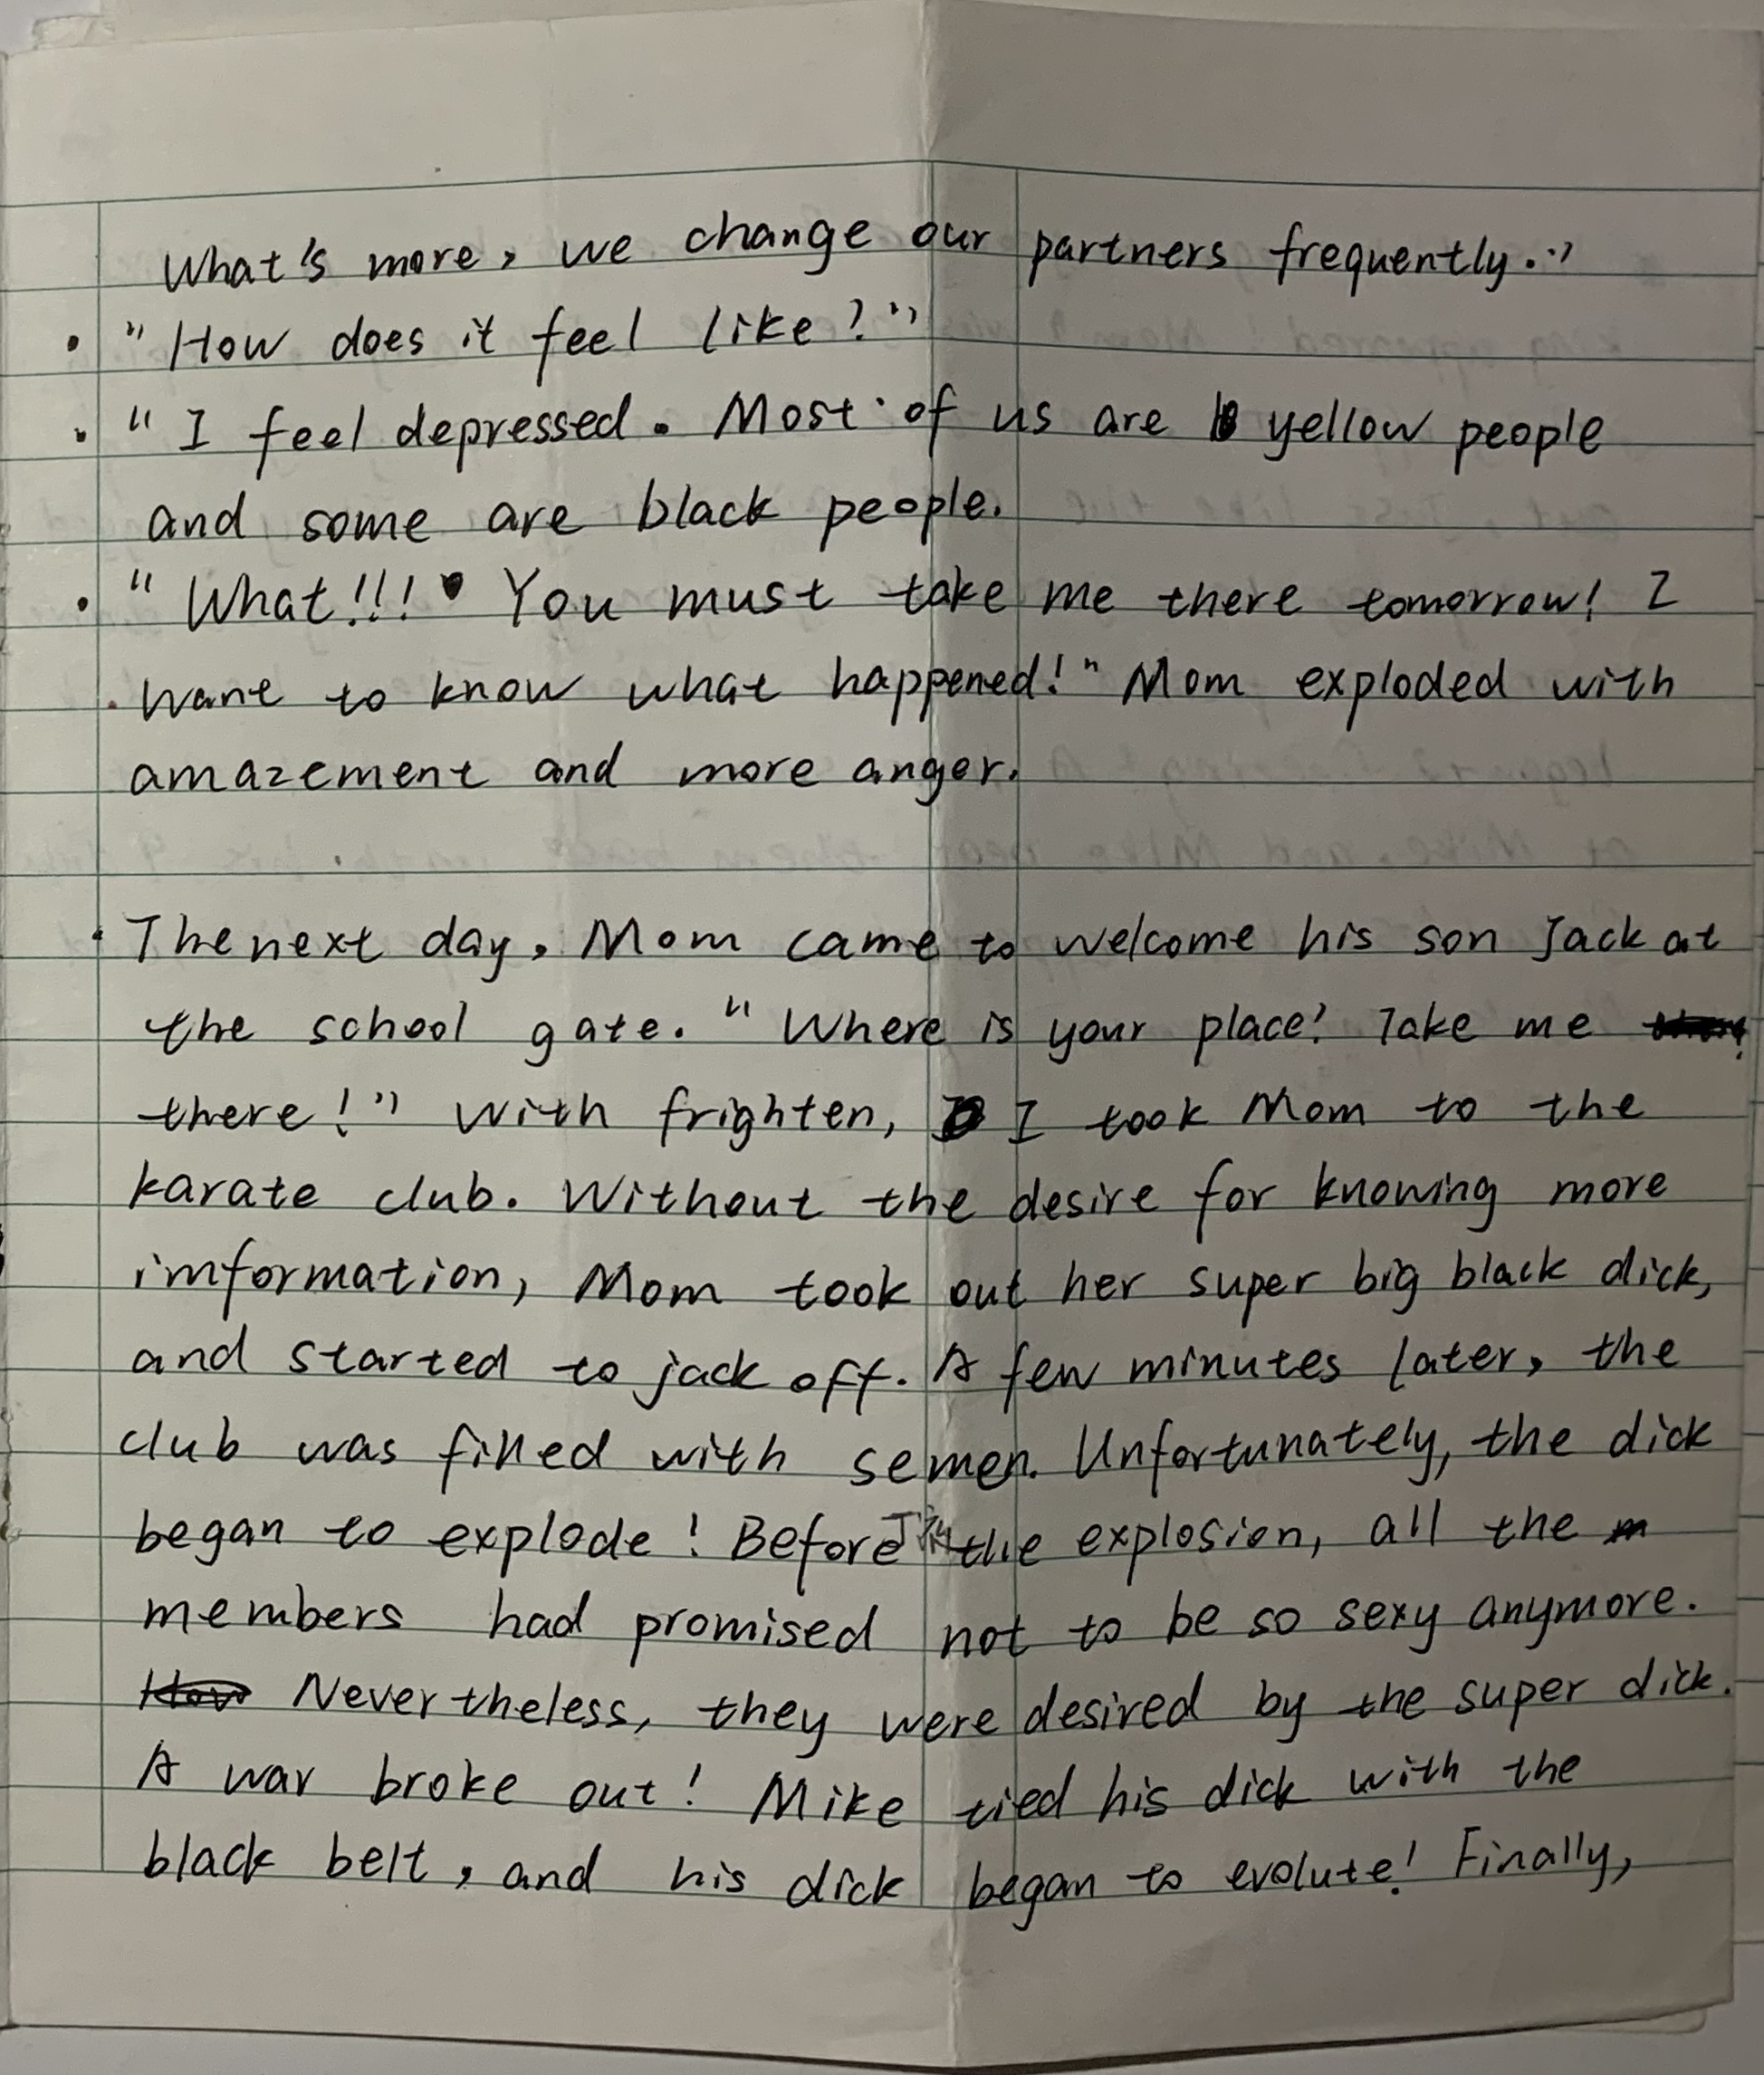 What's more, we change our partners frequently."
"How does it feel like?"
"I feel depressed. Most of us are yellow people
and some are black people.
"What!!! You must take me there tomorrow! I
want to know what happened!" Mom exploded with
amazement and more anger.
The next day, Mom came to welcome his son Jack at
the school gate. "Where is your place? Take me
there!" With frighten, I took Mom to the
karate club. Without the desire for knowing more
imformation, Mom took out her super big black dick,
and started to jack off. A few minutes later, the
club was filled with semen. Unfortunately, the dick
began to explode! Before the explosion, all the
members had promised not to be so sexy anymore.
Nevertheless, they were desired by the super dick.
A war broke out! Mike tied his dick with the
black belt, and his dick began to evolute! Finally,